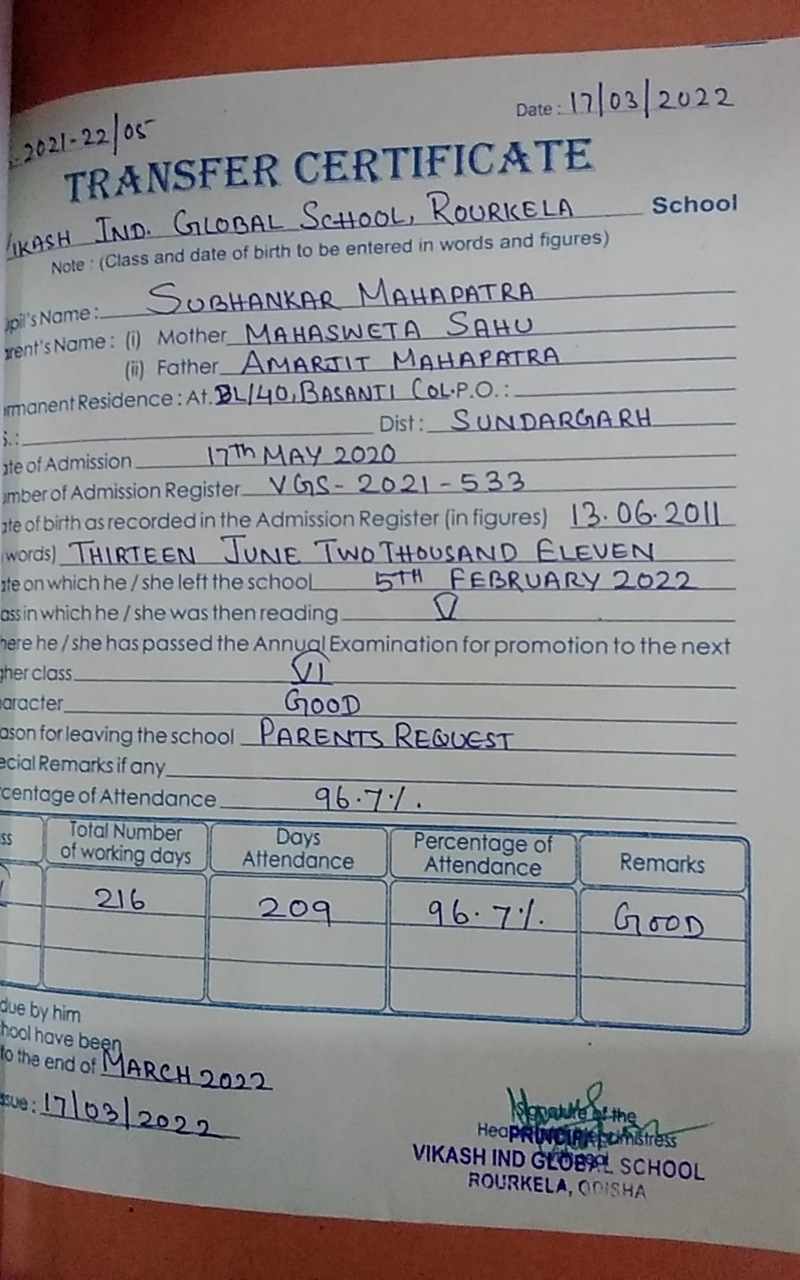 2021-22/05
Date : 17/03/2022
TRANSFER CERTIFICATE
VIKASH IND. GLOBAL SCHOOL, ROURKELA School
Note : (Class and date of birth to be entered in words and figures)
pil's Name : SUBHANKAR MAHAPATRA
rent's Name : (i) Mother MAHASWETA SAHU
(ii) Father AMARJIT MAHAPATRA
rmanent Residence : At. BL/40, BASANTI COL. P.O. :
S. : Dist : SUNDARGARH
ate of Admission 17TH MAY 2020
mber of Admission Register VGS-2021-533
ate of birth as recorded in the Admission Register (in figures) 13.06.2011
words) THIRTEEN JUNE TWO THOUSAND ELEVEN
ate on which he / she left the school 5TH FEBRUARY 2022
ass in which he / she was then reading V
here he / she has passed the Annual Examination for promotion to the next
gher class VI
aracter GOOD
ason for leaving the school PARENTS REQUEST
ecial Remarks if any
centage of Attendance 96.7%.
ss Total Number of working days Days Attendance Percentage of Attendance Remarks
216 209 96.7%. GOOD
due by him
hool have been
to the end of MARCH 2022
ssue : 17/03/2022
Signature of the
PRINCIPAL
VIKASH IND GLOBAL SCHOOL
ROURKELA, ODISHA